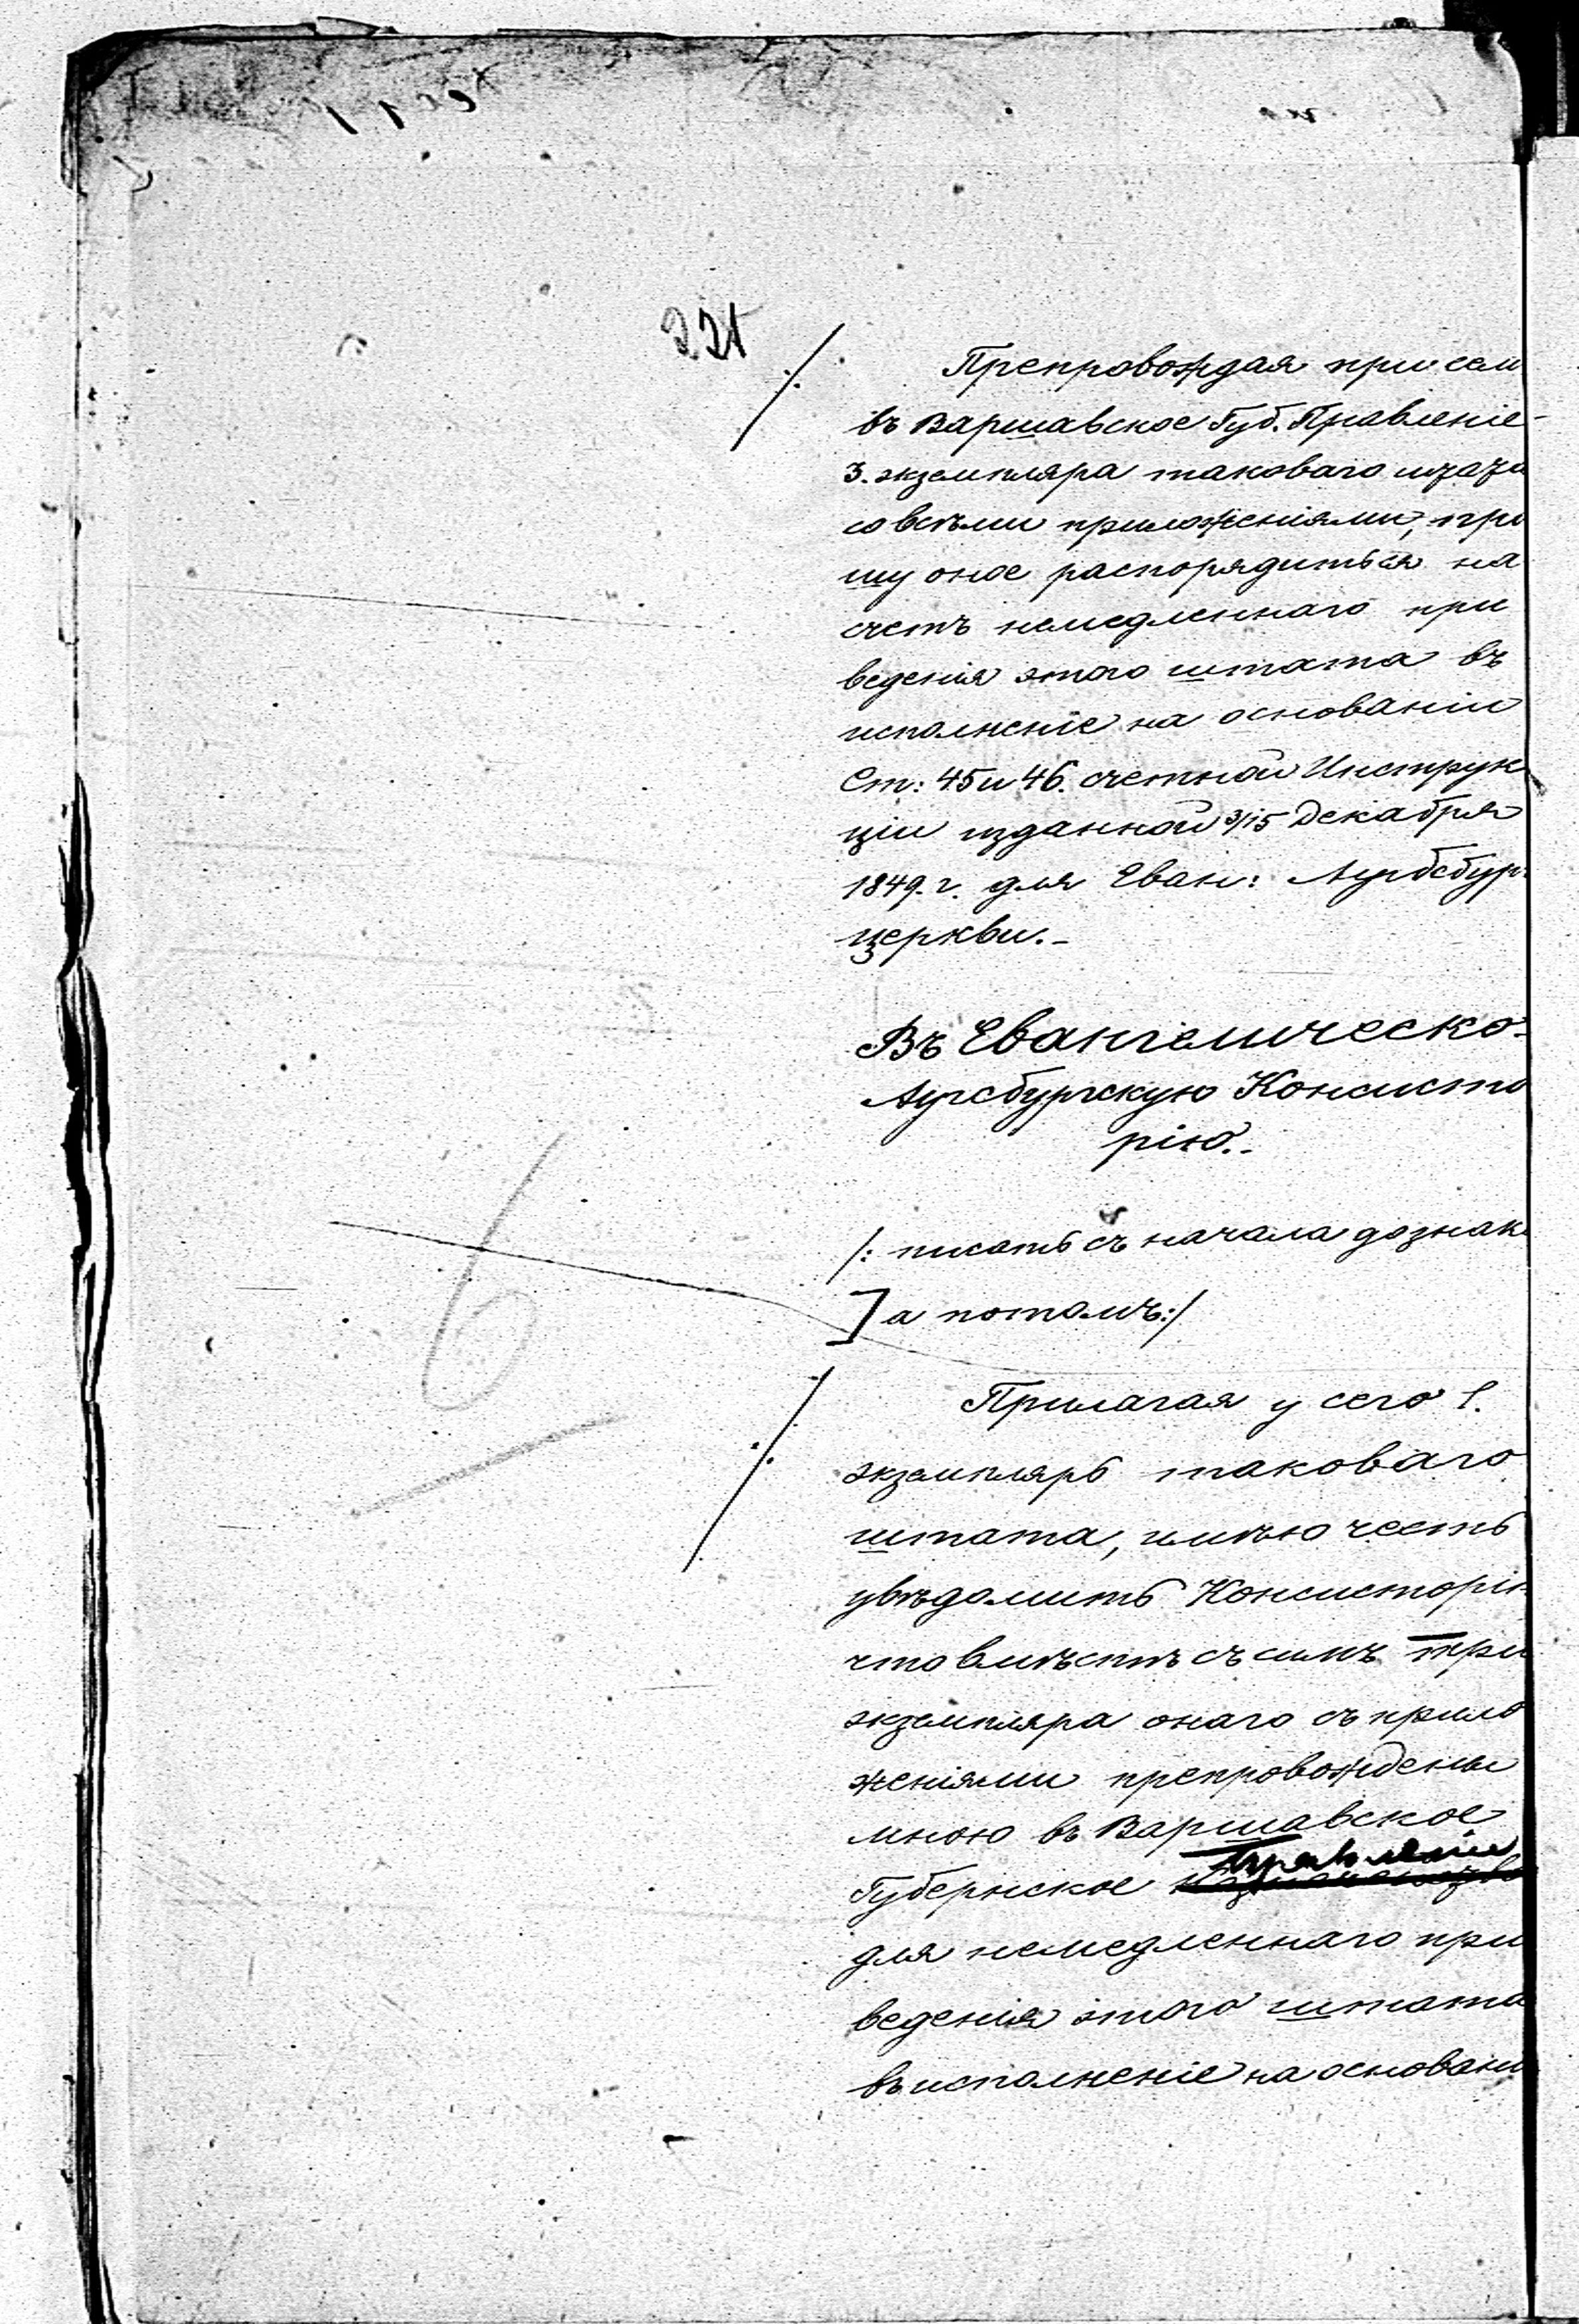 221
Препровождая при сем
въ Варшавское Губ. Правленіе
3. экземпляра таковаго штата
со всѣми приложеніями, про
шу оное распорядиться на
счетъ немедленнаго при
веденія этого штата въ
исполненіе на основаніи
Ст: 45 и 46. счетной Инструк
ціи изданной 3/15 Декабря
1849. г. для Еван: Аугсбур:
церкви.-
Въ Евангелическо-
Аугсбургскую Консисто
рію.-
/: писать съ начала до знака
] а потомъ:/
Прилагая у сего 1.
экземпляръ таковаго
штата, имѣю честь
увѣдомить Консисторію
что вмѣстѣ съ симъ три
экземпляра онаго съ прило
женіями препровождены
мною въ Варшавское
Правленіе
Губернское
для немедленнаго при
веденія этого штата
въ исполненіе на основаніи